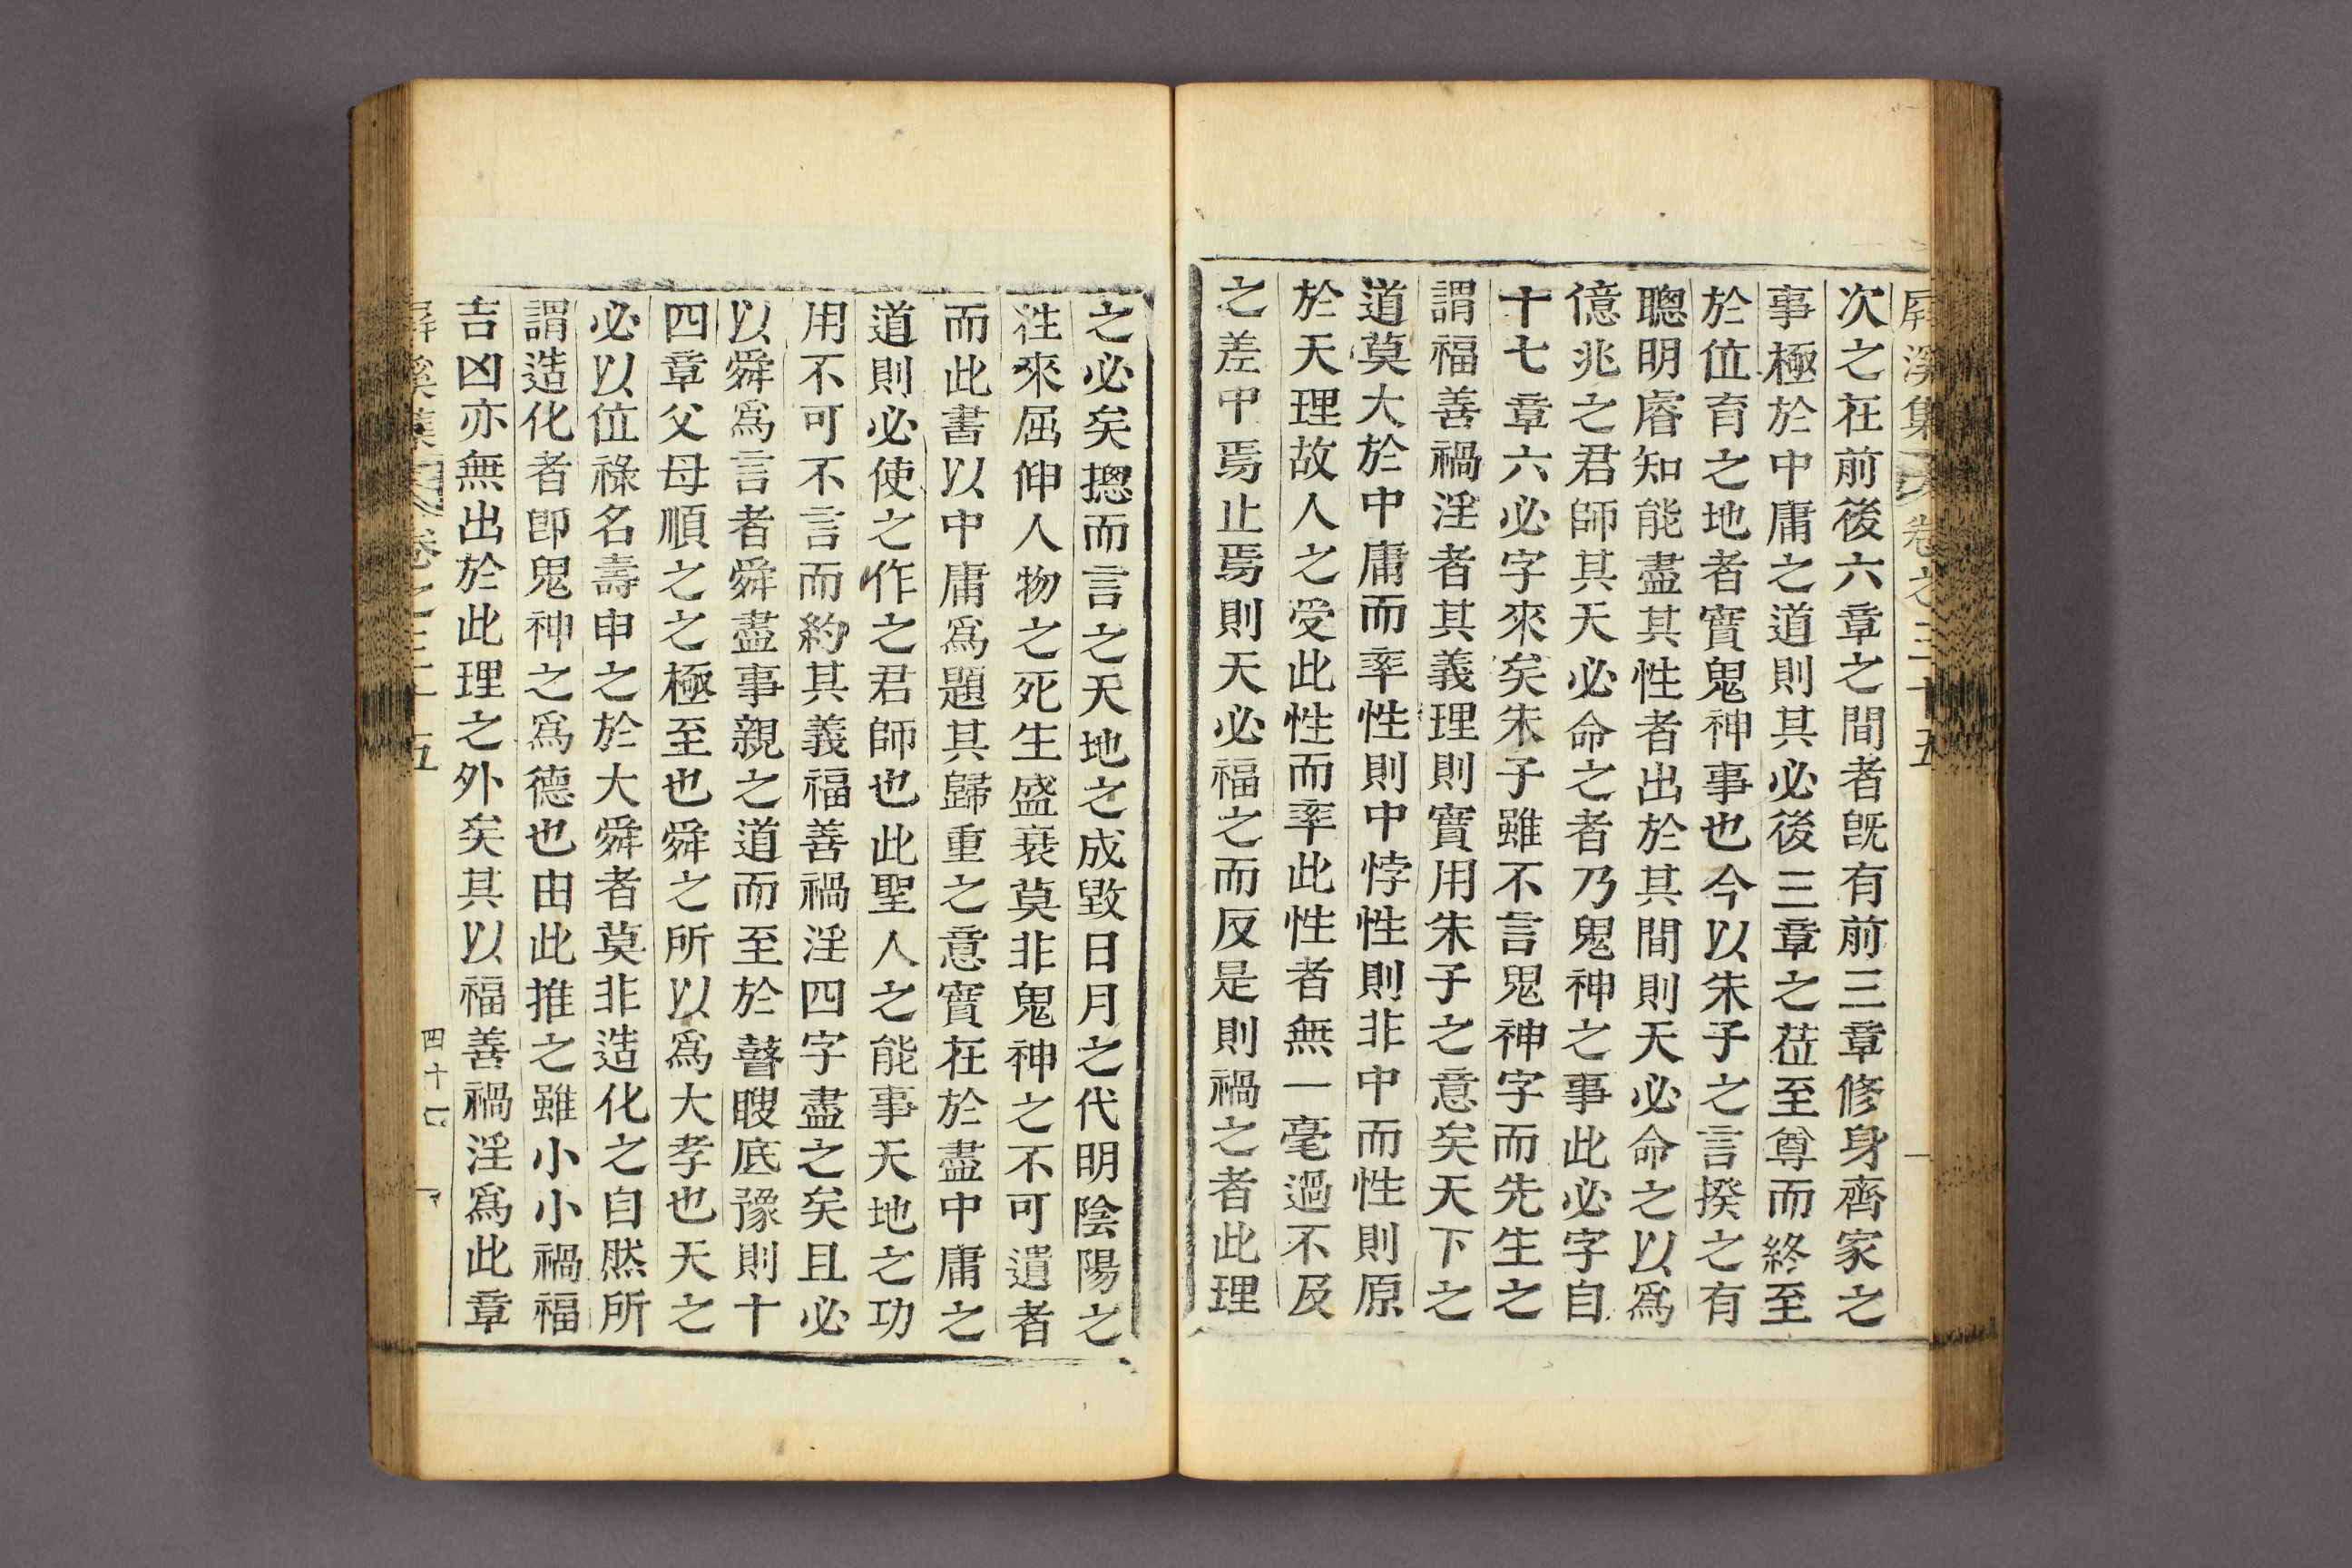 屛溪集 卷之三十五
次之在前後六章之間者旣有前三章修身齊家之
事極於中庸之道則其必後三章之莅至尊而終至
於位育之地者實鬼神事也今以朱子之言揆之有
聰明睿知能盡其性者出於其間則天必命之以爲
億兆之君師其天必命之者乃鬼神之事此必字自
十七章六必字來矣朱子雖不言鬼神字而先生之
謂福善禍淫者其義理則實用朱子之意矣天下之
道莫大於中庸而率性則中悖性則非中而性則原
於天理故人之受此性而率此性者無一毫過不及
之差中焉止焉則天必福之而反是則禍之者此理
之必矣摠而言之天地之成毀日月之代明陰陽之
徃來屈伸人物之死生盛衰莫非鬼神之不可遺者
而此書以中庸爲題其歸重之意實在於盡中庸之
道則必使之作之君師也此聖人之能事天地之功
用不可不言而約其義福善禍淫四字盡之矣且必
以舜爲言者舜盡事親之道而至於瞽瞍底豫則十
四章父母順之之極至也舜之所以爲大孝也天之
必以位祿名壽申之於大舜者莫非造化之自然所
謂造化者卽鬼神之爲德也由此推之雖小小禍福
吉凶亦無出於此理之外矣其以福善禍淫爲此章
屛溪集 卷之三十五 四十